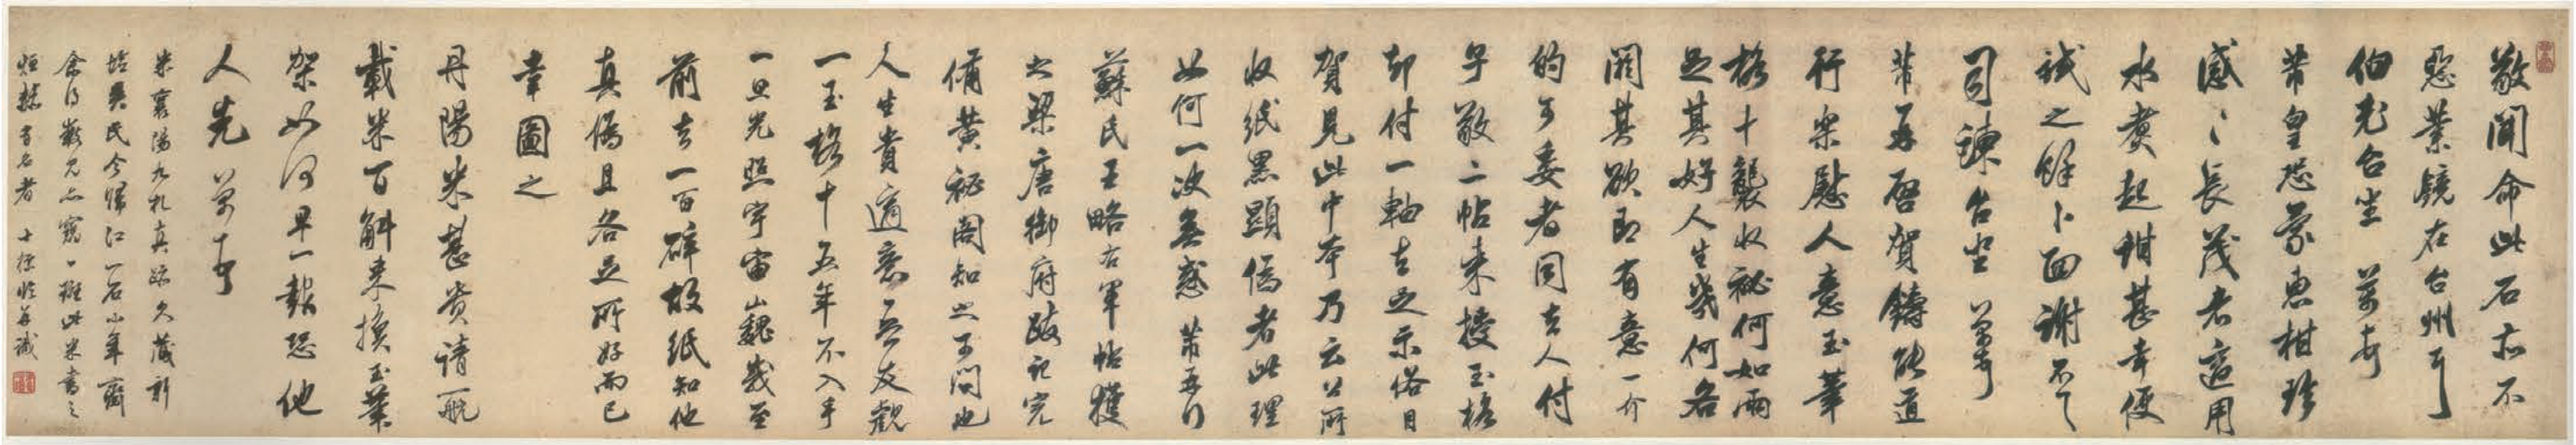 敬聞命此石亦不
惡業鏡在台州耳
伯老台坐 芾頓首
芾皇恐蒙惠柑珍
感〻長茂者適用
水煑起甜甚幸便
試之餘卜面謝不一
司諫台坐 芾頓首
芾再啓賀鑄能道
行樂慰人意玉華
格十襲收祕何如兩
足其好人生幾何各
閼其欲即有意一介
的可委者同去人付
子敬二帖來授玉格
却付一軸去足示俗目
賀見此中本乃云公所
收紙黑顯偽者此理
如何一決無惑芾再行
蘇氏王略右軍帖獲
之梁唐御府跋記完
備黄祕閣知之可問也
人生貴適意吾友覷
一玉格十五年不入手
一旦光照宇宙巍峩至
前去一百碎故紙知他
真偽且各足所好而已
幸圖之
丹陽米甚貴請一航
載米百斛來換玉筆
架如何早一報恐他
人先 芾頓首
米襄陽九札真跡久藏新
吳民今歸江一石小年齋
余得觀之亦窺一班此米書之
烜赫有名者 十 臨并識